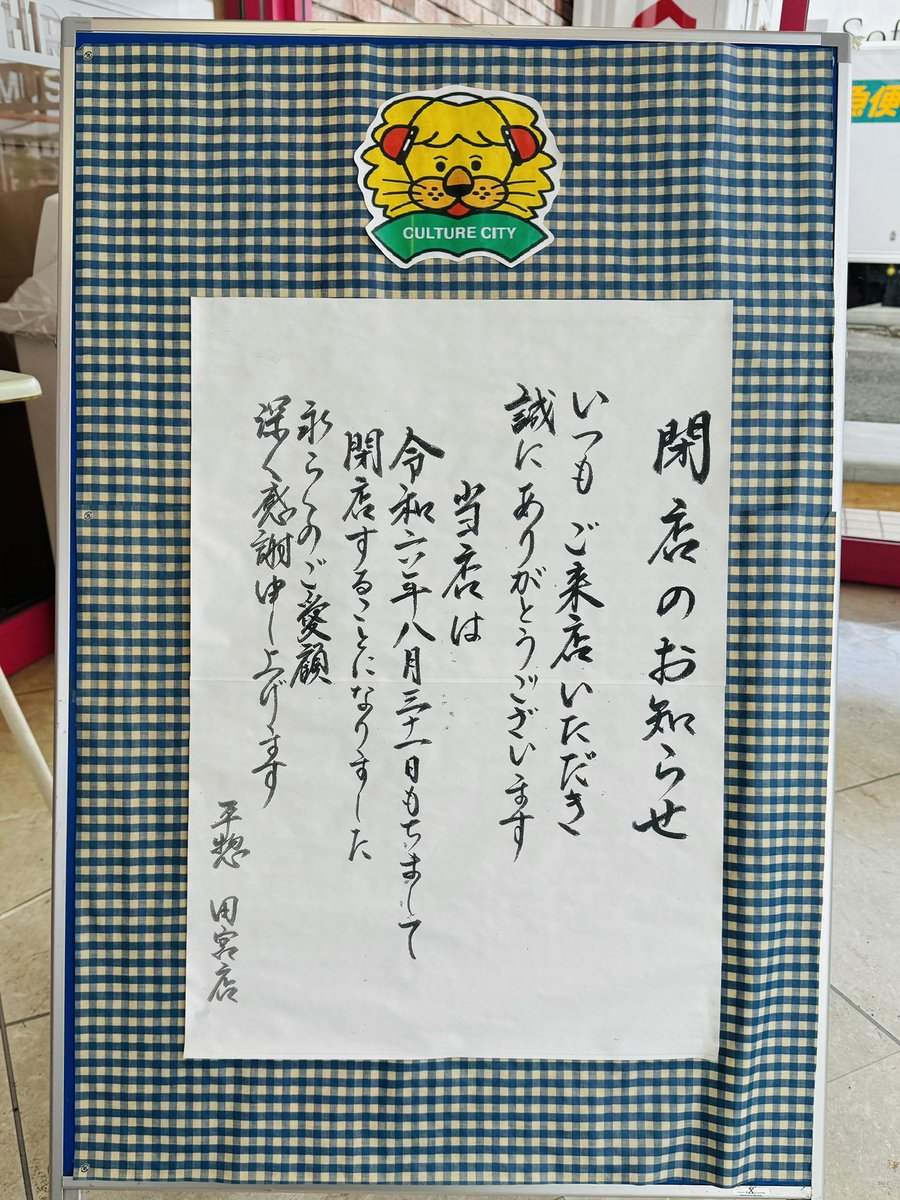 CULTURE CITY
閉店のお知らせ
いつも ご来店いただき
誠に ありがとうございます
当店は
令和六年八月三十一日もちまして
閉店することになりました
永らくのご愛顧
深く感謝申し上げます
平惣 田宮店
急便